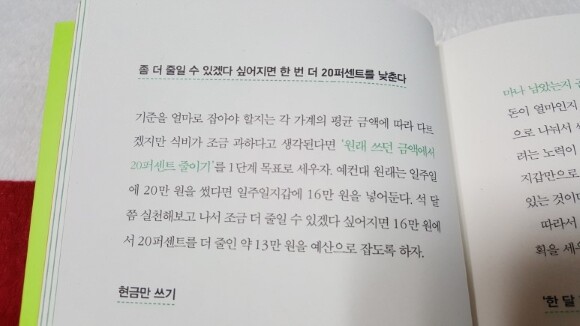 좀 더 줄일 수 있겠다 싶어지면 한 번 더 20퍼센트를 낮춘다
기준을 얼마로 잡아야 할지는 각 가계의 평균 금액에 따라 다르
겠지만 식비가 조금 과하다고 생각된다면 '원래 쓰던 금액에서
20퍼센트 줄이기'를 1단계 목표로 세우자. 예컨대 원래는 일주일
에 20만 원을 썼다면 일주일지갑에 16만 원을 넣어둔다. 석 달
쯤 실천해보고 나서 조금 더 줄일 수 있겠다 싶어지면 16만 원에
서 20퍼센트를 더 줄인 약 13만 원을 예산으로 잡도록 하자.
현금만 쓰기
마나 남았는지
돈이 얼마인지
으로 나눠서
려는 노력이
지갑만으로
있는 것이다
따라서
획을 세우
'한 달